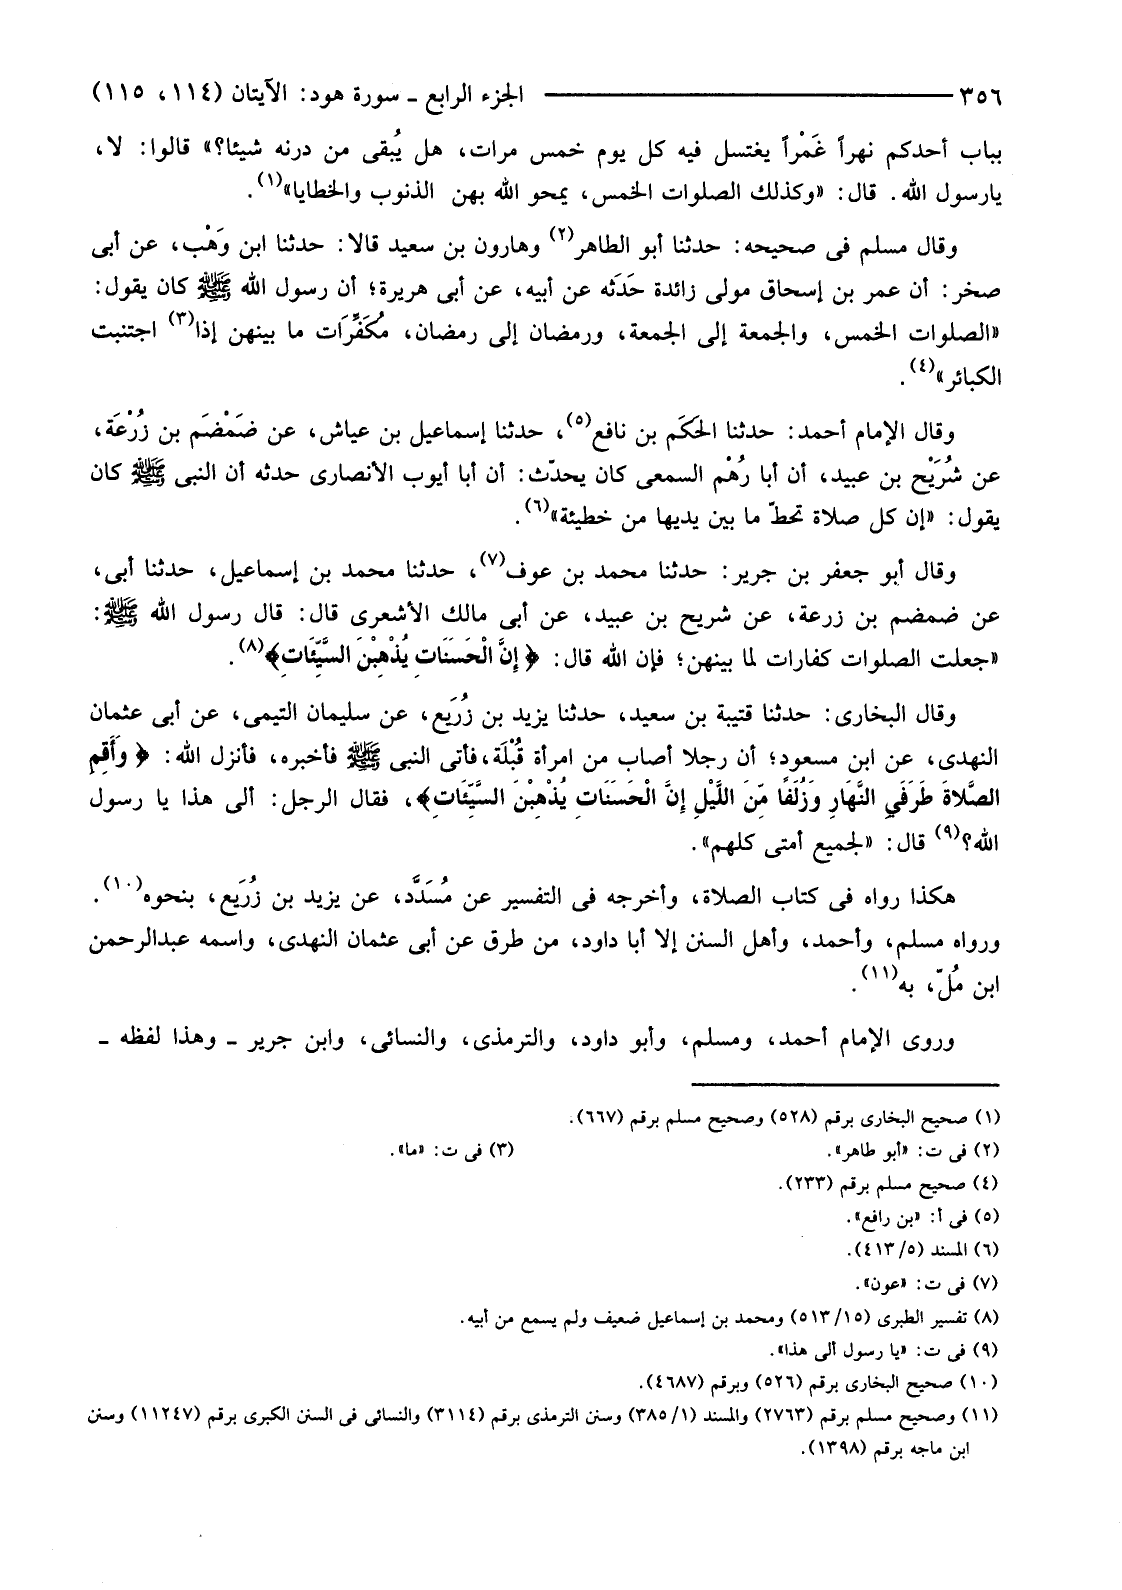 ٣٥٦ ــــــــــــــــــــ الجزء الرابع ـ سورة هود: الآيتان (١١٤، ١١٥)
بباب أحدكم نهراً غَمْراً يغتسل فيه كل يوم خمس مرات، هل يُبقى من درنه شيئا؟» قالوا: لا،
يارسول الله. قال: «وكذلك الصلوات الخمس، يمحو الله بهن الذنوب والخطايا»(١).
وقال مسلم فى صحيحه: حدثنا أبو الطاهر(٢) وهارون بن سعيد قالا: حدثنا ابن وَهْب، عن أبى
صخر: أن عمر بن إسحاق مولى زائدة حَدَثه عن أبيه، عن أبى هريرة؛ أن رسول الله ﷺ كان يقول:
«الصلوات الخمس، والجمعة إلى الجمعة، ورمضان إلى رمضان، مُكَفِّرَات ما بينهن إذا(٣) اجتنبت
الكبائر»(٤).
وقال الإمام أحمد: حدثنا الحَكَم بن نافع(٥)، حدثنا إسماعيل بن عياش، عن ضَمْضَم بن زُرْعَة،
عن شُرَيْح بن عبيد، أن أبا رُهْم السمعى كان يحدّث: أن أبا أيوب الأنصارى حدثه أن النبى ﷺ كان
يقول: «إن كل صلاة تحطّ ما بين يديها من خطيئة»(٦).
وقال أبو جعفر بن جرير: حدثنا محمد بن عوف(٧)، حدثنا محمد بن إسماعيل، حدثنا أبى،
عن ضمضم بن زرعة، عن شريح بن عبيد، عن أبى مالك الأشعرى قال: قال رسول الله ﷺ:
«جعلت الصلوات كفارات لما بينهن؛ فإن الله قال: ﴿ إِنَّ الْحَسَنَاتِ يُذْهِبْنَ السَّيِّئَاتِ﴾(٨).
وقال البخارى: حدثنا قتيبة بن سعيد، حدثنا يزيد بن زُرَيع، عن سليمان التيمى، عن أبى عثمان
النهدى، عن ابن مسعود؛ أن رجلا أصاب من امرأة قُبْلَة، فأتى النبى ﷺ فأخبره، فأنزل الله: ﴿ وَأَقِمِ
الصَّلاةَ طَرَفَيِ النَّهَارِ وَزُلَفًا مِّنَ اللَّيْلِ إِنَّ الْحَسَنَاتِ يُذْهِبْنَ السَّيِّئَاتِ﴾، فقال الرجل: ألى هذا يا رسول
الله؟(٩) قال: «لجميع أمتى كلهم».
هكذا رواه فى كتاب الصلاة، وأخرجه فى التفسير عن مُسَدَّد، عن يزيد بن زُرَيع، بنحوه(١٠).
ورواه مسلم، وأحمد، وأهل السنن إلا أبا داود، من طرق عن أبى عثمان النهدى، واسمه عبدالرحمن
ابن مُلّ، به(١١).
وروى الإمام أحمد، ومسلم، وأبو داود، والترمذى، والنسائى، وابن جرير ـ وهذا لفظه ـ
(١) صحيح البخارى برقم (٥٢٨) وصحيح مسلم برقم (٦٦٧).
(٢) فى ت: «أبو طاهر». (٣) فى ت: «ما».
(٤) صحيح مسلم برقم (٢٣٣).
(٥) فى أ: «بن رافع».
(٦) المسند (٤١٣/٥).
(٧) فى ت: «عون».
(٨) تفسير الطبرى (٥١٣/١٥) ومحمد بن إسماعيل ضعيف ولم يسمع من أبيه.
(٩) فى ت: «يا رسول ألى هذا».
(١٠) صحيح البخارى برقم (٥٢٦) وبرقم (٤٦٨٧).
(١١) وصحيح مسلم برقم (٢٧٦٣) والمسند (٣٨٥/١) وسنن الترمذى برقم (٣١١٤) والنسائى فى السنن الكبرى برقم (١١٢٤٧) وسنن
ابن ماجه برقم (١٣٩٨).